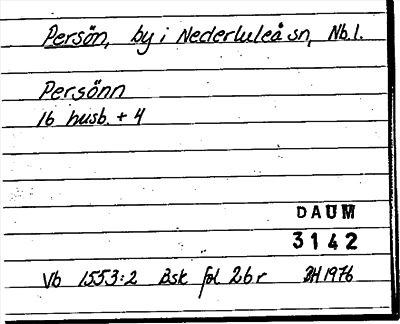 Persön, by i Nederluleå sn, Nb.l.
Persönn
16 husb. + 4
DAUM
3142
Vb 1553:2 Bsk fol 26 r 1976